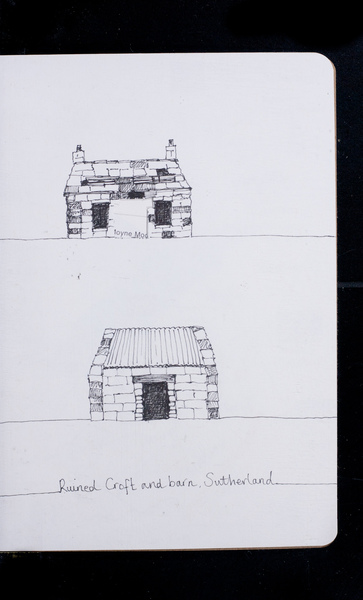 toyne Moo
Ruined Croft and barn, Sutherland